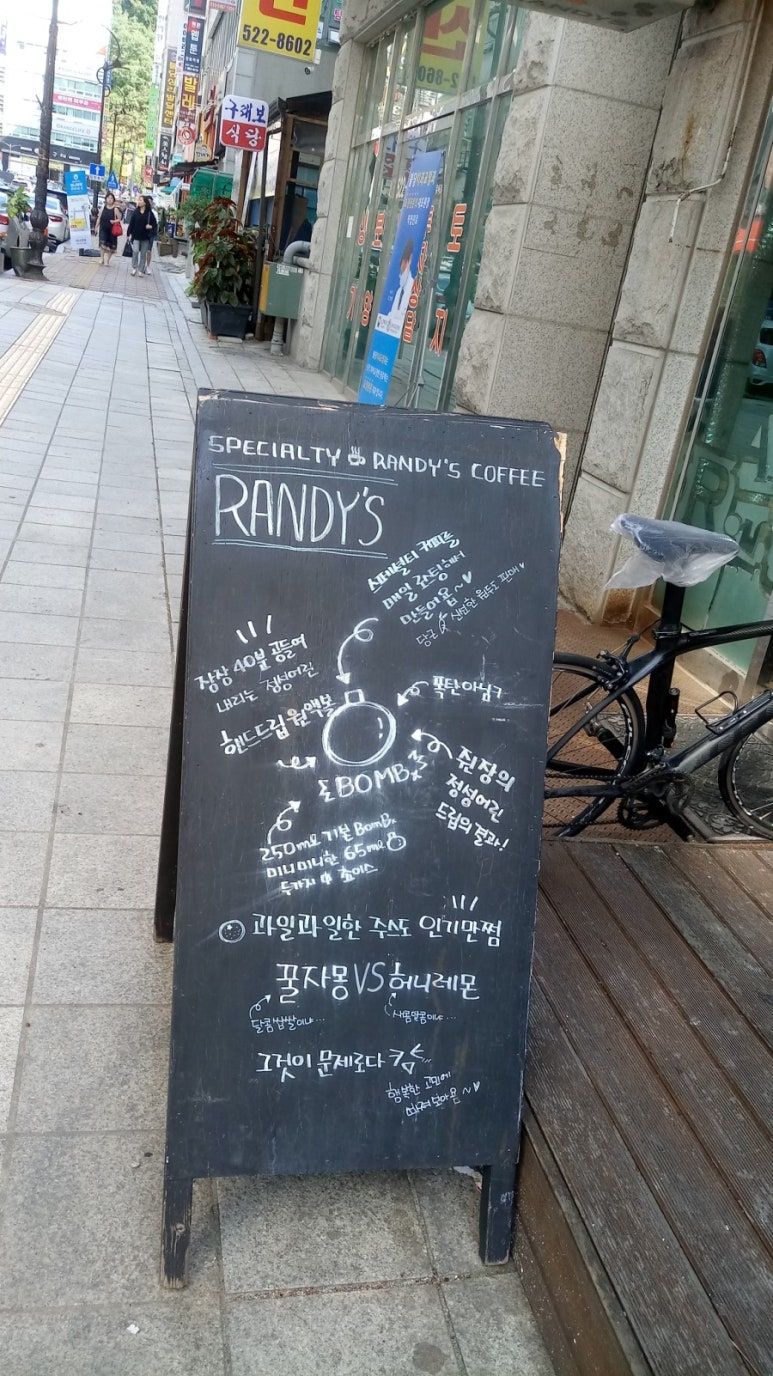 522-8602
구래보
식당
발레
SPECIALTY RANDY'S COFFEE
RANDY'S
스페셜티 커피를
매일 로스팅해서
만들어욥~♥
당근 신선한 원두도 판매♥
장장 40분 공들여
내리는 정성어린
핸드드립 원액볼
폭탄아님ㅋ
BOMB
쥔장의
정성어린
드립의 결과!
250ml 기본 BomB
미니미니한 65ml
두가지 中 초이스
과일과일한 주스도 인기만쩜
꿀자몽 VS 허니레몬
달콤쌉쌀이냐…
새콤달콤이냐…
그것이 문제로다 캬
행복한 고민에
빠져보아욤~♥